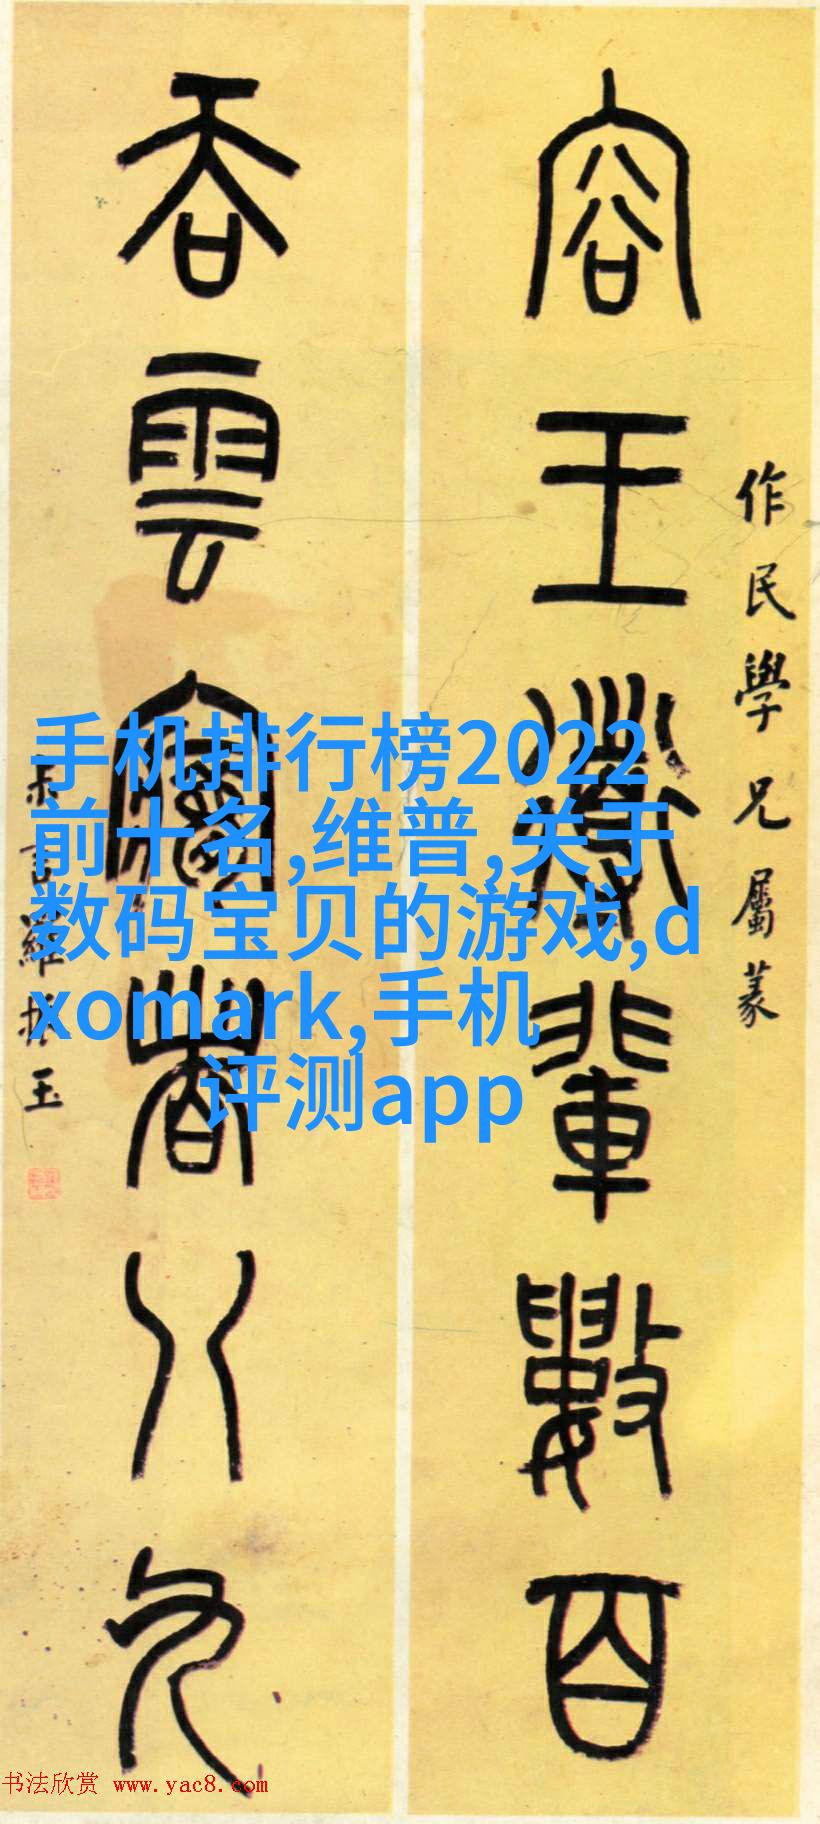 作民學兄屬篆
容王導輩數百
吞雲夢者八九
叔言羅振玉
手机排行榜2022
前十名,维普,关于
数码宝贝的游戏,d
xomark,手机
评测app
书法欣赏 www.yac8.com